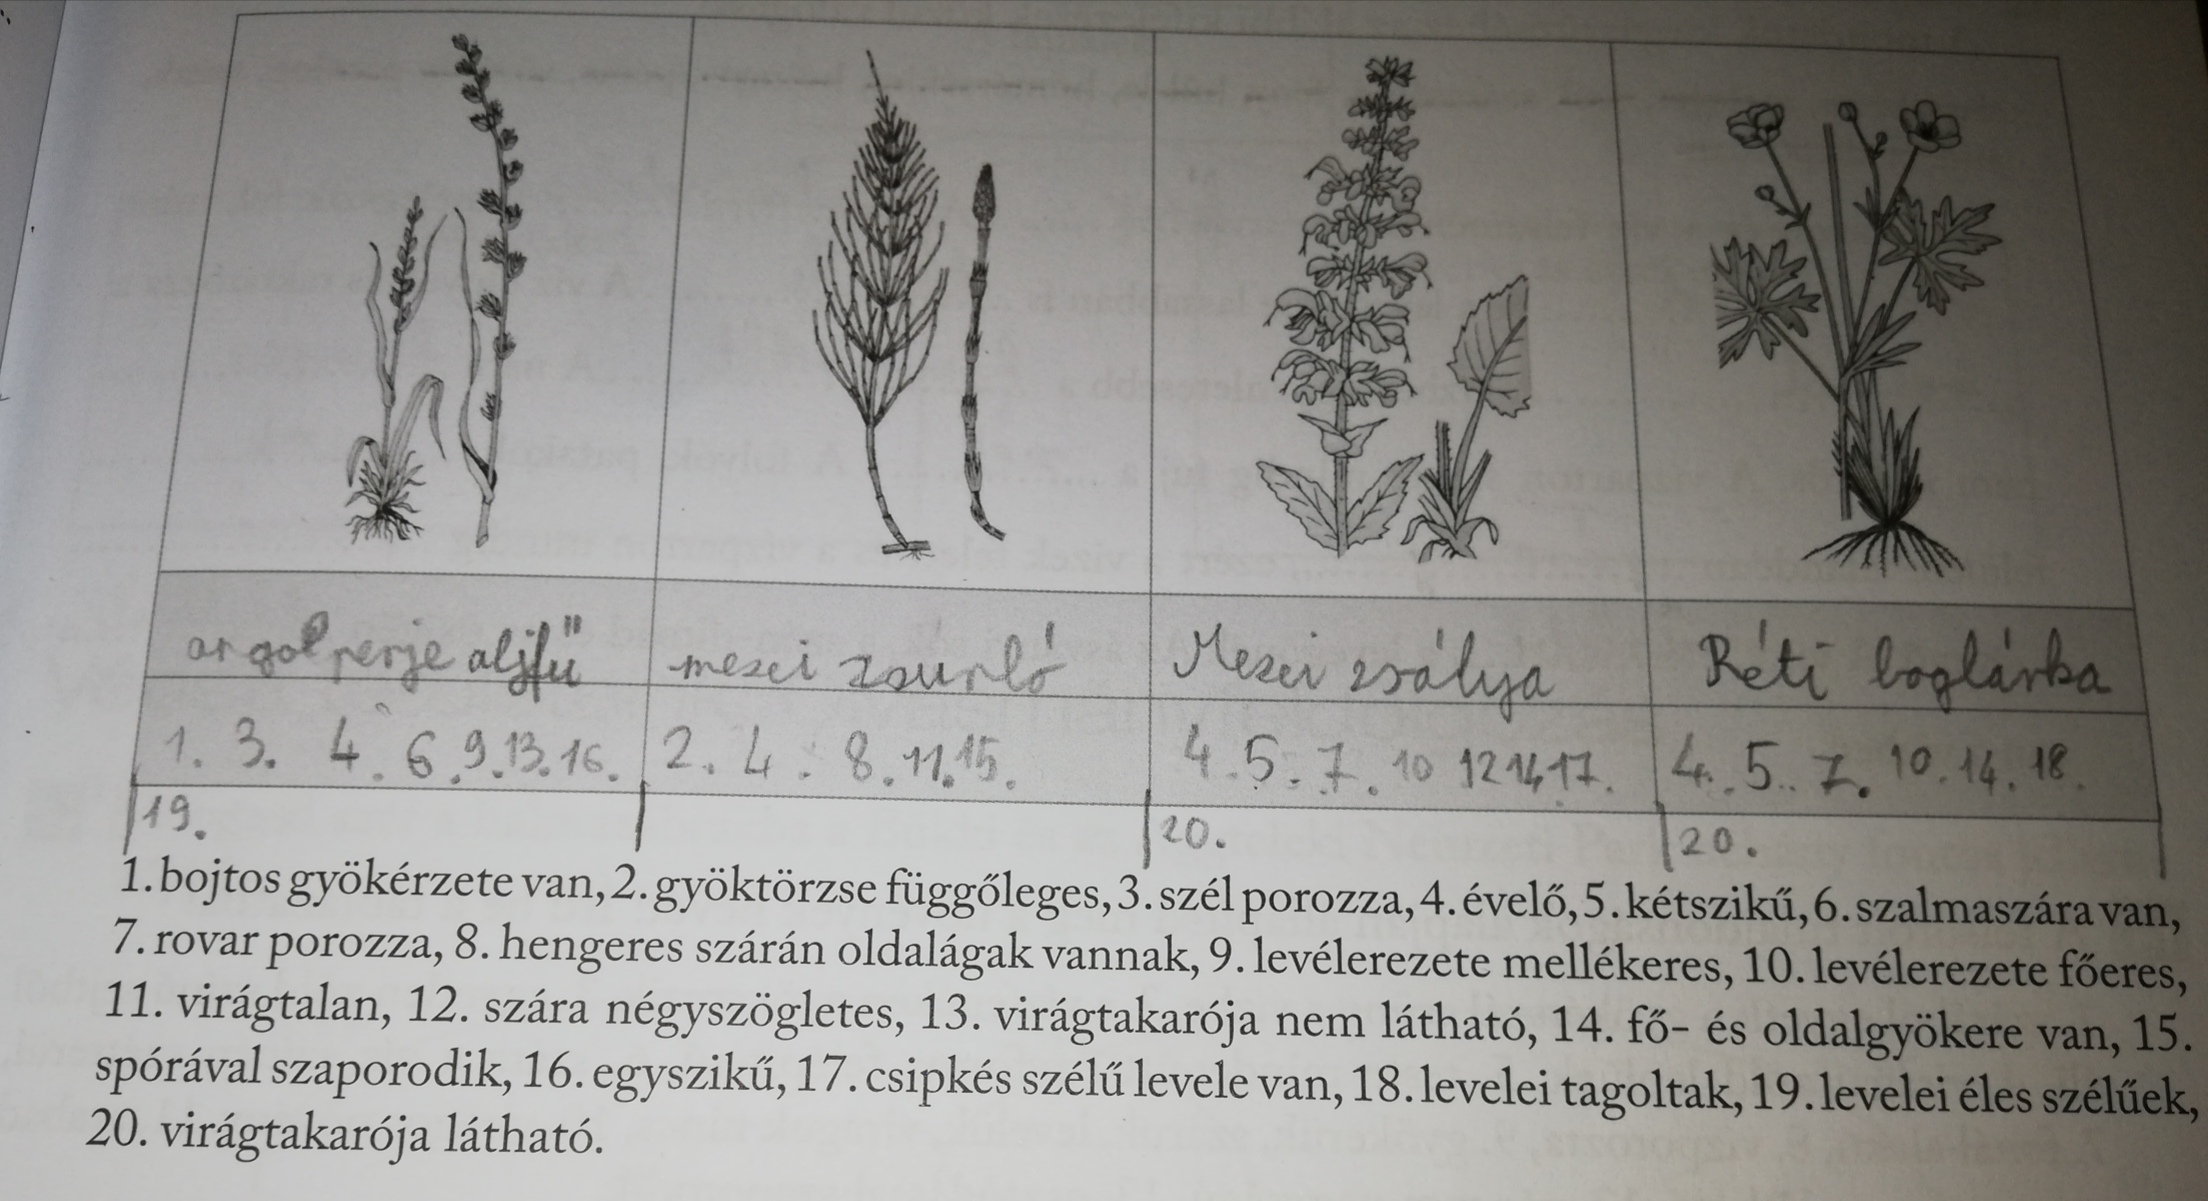 angolperje aljfű mezei zsurló Mezei zsálya Réti boglárka
1. 3. 4. 6. 9. 13. 16. 2. 4. 8. 11. 15. 4. 5. 7. 10 12 14 17. 4. 5. 7. 10. 14. 18.
19. 20. 20.
1. bojtos gyökérzete van, 2. gyöktörzse függőleges, 3. szél porozza, 4. évelő, 5. kétszikű, 6. szalmaszára van,
7. rovar porozza, 8. hengeres szárán oldalágak vannak, 9. levélerezete mellékeres, 10. levélerezete főeres,
11. virágtalan, 12. szára négyszögletes, 13. virágtakarója nem látható, 14. fő- és oldalgyökere van, 15.
spórával szaporodik, 16. egyszikű, 17. csipkés szélű levele van, 18. levelei tagoltak, 19. levelei éles szélűek,
20. virágtakarója látható.